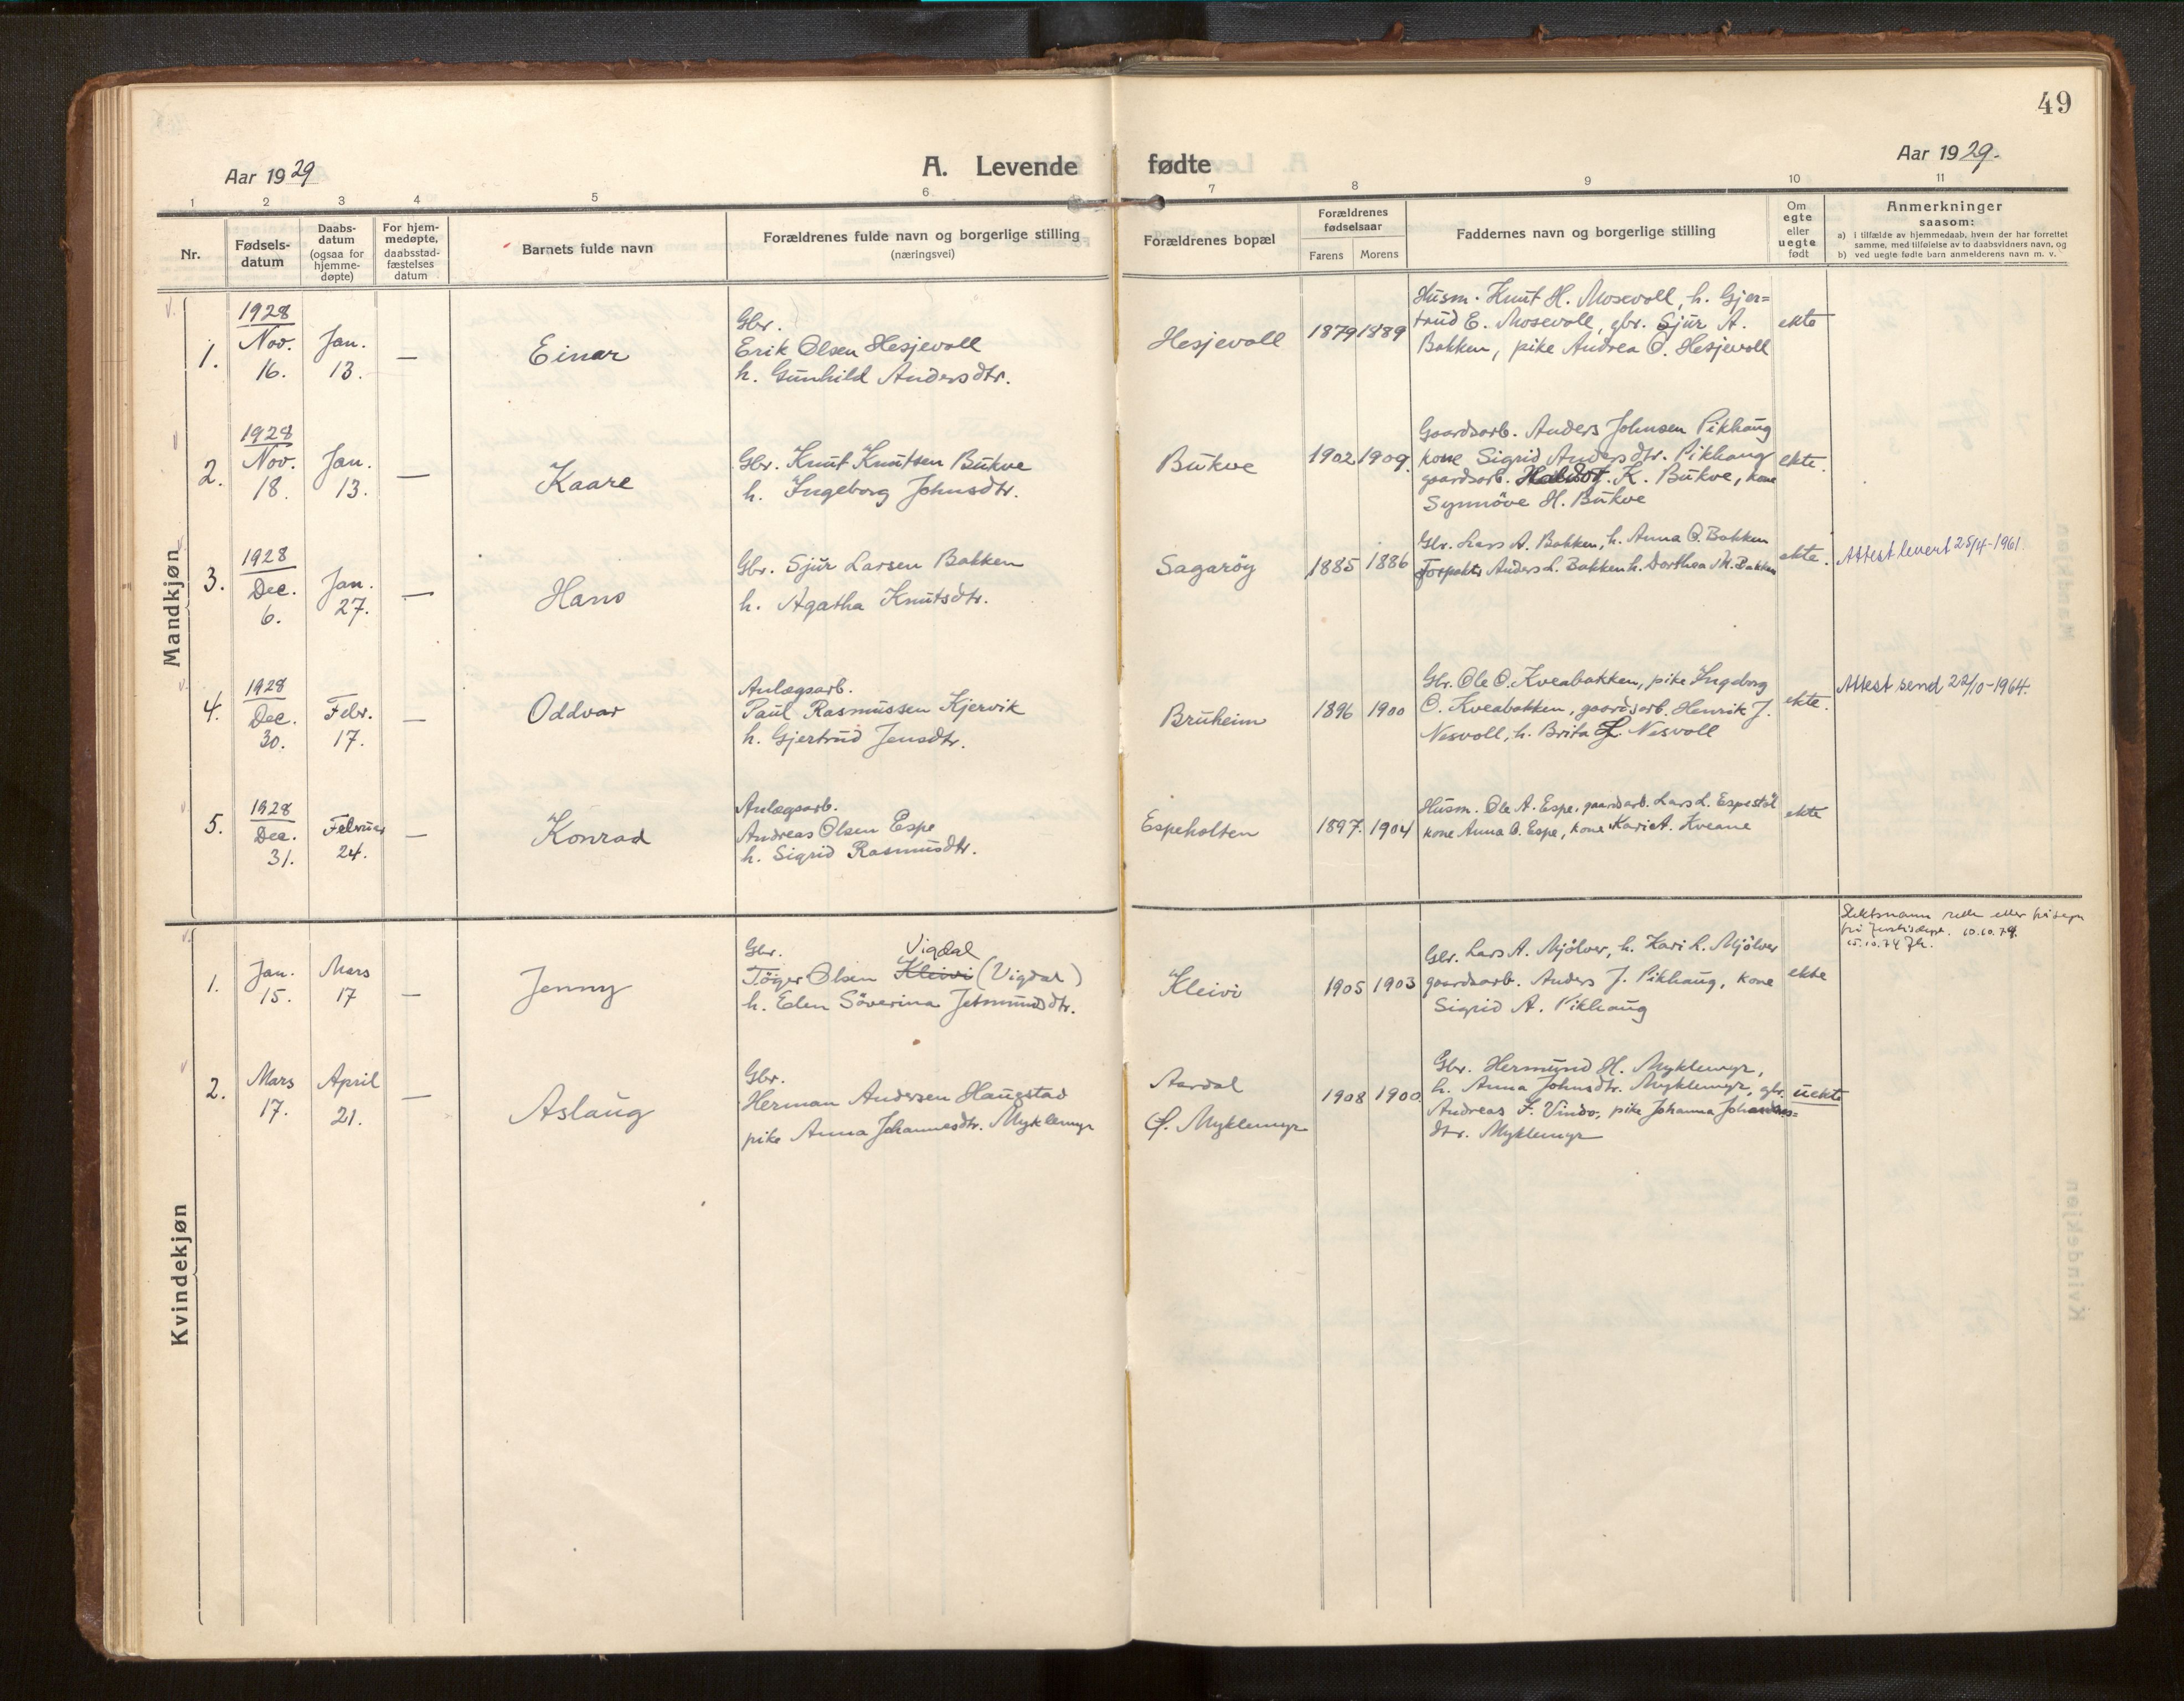 49
Aar 1929
A. Levende fødte
Aar 1929.
1 2 3 4 5 6 7 8 9 10 11
Nr.
Fødsels-
datum
Daabs-
datum
(ogsaa for
hjemme-
døpte)
For hjem-
medøpte,
daabsstad-
fæstelses
datum
Barnets fulde navn
Forældrenes fulde navn og borgerlige stilling
(næringsvei)
Forældrenes bopæl
Forældrenes
fødselsaar
Farens Morens
Faddernes navn og borgerlige stilling
Om
egte
eller
uegte
født
Anmerkninger
saasom:
a) i tilfælde av hjemmedaab, hvem der har forrettet
samme, med tilføielse av to daabsvidners navn, og
b) ved uegte fødte barn anmelderens navn m. v.
Mandkjøn
1.
1928
Nov.
16.
Jan.
13.
—
Einar
Gbr.
Erik Olsen Hesjevoll
h. Gunhild Andersdtr.
Hesjevoll
1879 1889
Husm. Knut H. Mosevoll, h. Gjer=
trud E. Mosevoll, gbr. Sjur A.
Bakken, pike Andrea O. Hesjevoll
ekte
2.
1928
Nov.
18.
Jan.
13.
—
Kaare
Gbr. Knut Knutsen Bukve
h. Ingeborg Johnsdtr.
Bukve
1902 1909.
Gaardsarb. Anders Johnsen Pikhaug
kone Sigrid Andersdtr. Pikhaug
gaardsarb. Halvdor K. Bukve, kone
Synnöve H. Bukve
ekte.
3.
1928
Dec.
6.
Jan.
27.
—
Hans
Gbr. Sjur Larsen Bakken
h. Agatha Knutsdtr.
Sagarøy
1885 1886
Gbr. Lars A. Bakken, h. Anna O. Bakken
Forpakter Anders L. Bakken h. Dorthea M. Bakken
ekte.
Attest levert 25/4-1961.
4.
1928
Dec.
30.
Febr.
17.
—
Oddvar
Anlægsarb.
Paul Rasmussen Kjervik
h. Gjertrud Jensdtr.
Bruheim
1896 1900
Gbr. Ole O. Kveabakken, pike Ingeborg
O. Kveabakken, gaardsarb. Henrik J.
Nesvoll, h. Brita L. Nesvoll
ekte.
Attest send 22/10-1964.
5.
1928
Dec.
31.
Februar
24.
—
Konrad
Anlægsarb.
Andreas Olsen Espe
h. Sigrid Rasmusdtr.
Espeholten
1897. 1904
Husm. Ole A. Espe, gaardsarb. Lars L. Espestöl
kone Anna O. Espe, kone Kari A. Kveane
ekte
Kvindekjøn
1.
Jan.
15.
Mars
17
—
Jenny
Gbr. Vigdal
Töger Olsen Kleivi (Vigdal)
h. Elen Söverina Jetmundsdtr.
Kleivi
1905 1903
Gbr. Lars A. Mjölver, h. Kari L. Mjölver
gaardsarb. Anders J. Pikhaug, kone
Sigrid A. Pikhaug
ekte
10.10.74
15.10.74
2.
Mars
17.
April
21.
—
Aslaug
Gbr.
Herman Andersen Haugstad
pike Anna Johannesdtr. Myklemyr
Aardal
Myklemyr
1908 1900.
Gbr. Hermund H. Myklemyr,
h. Anna Johnsdtr. Myklemyr, gbr.
Andreas F. Vindo, pike Johanna Johannes=
dtr. Myklemyr
uekte